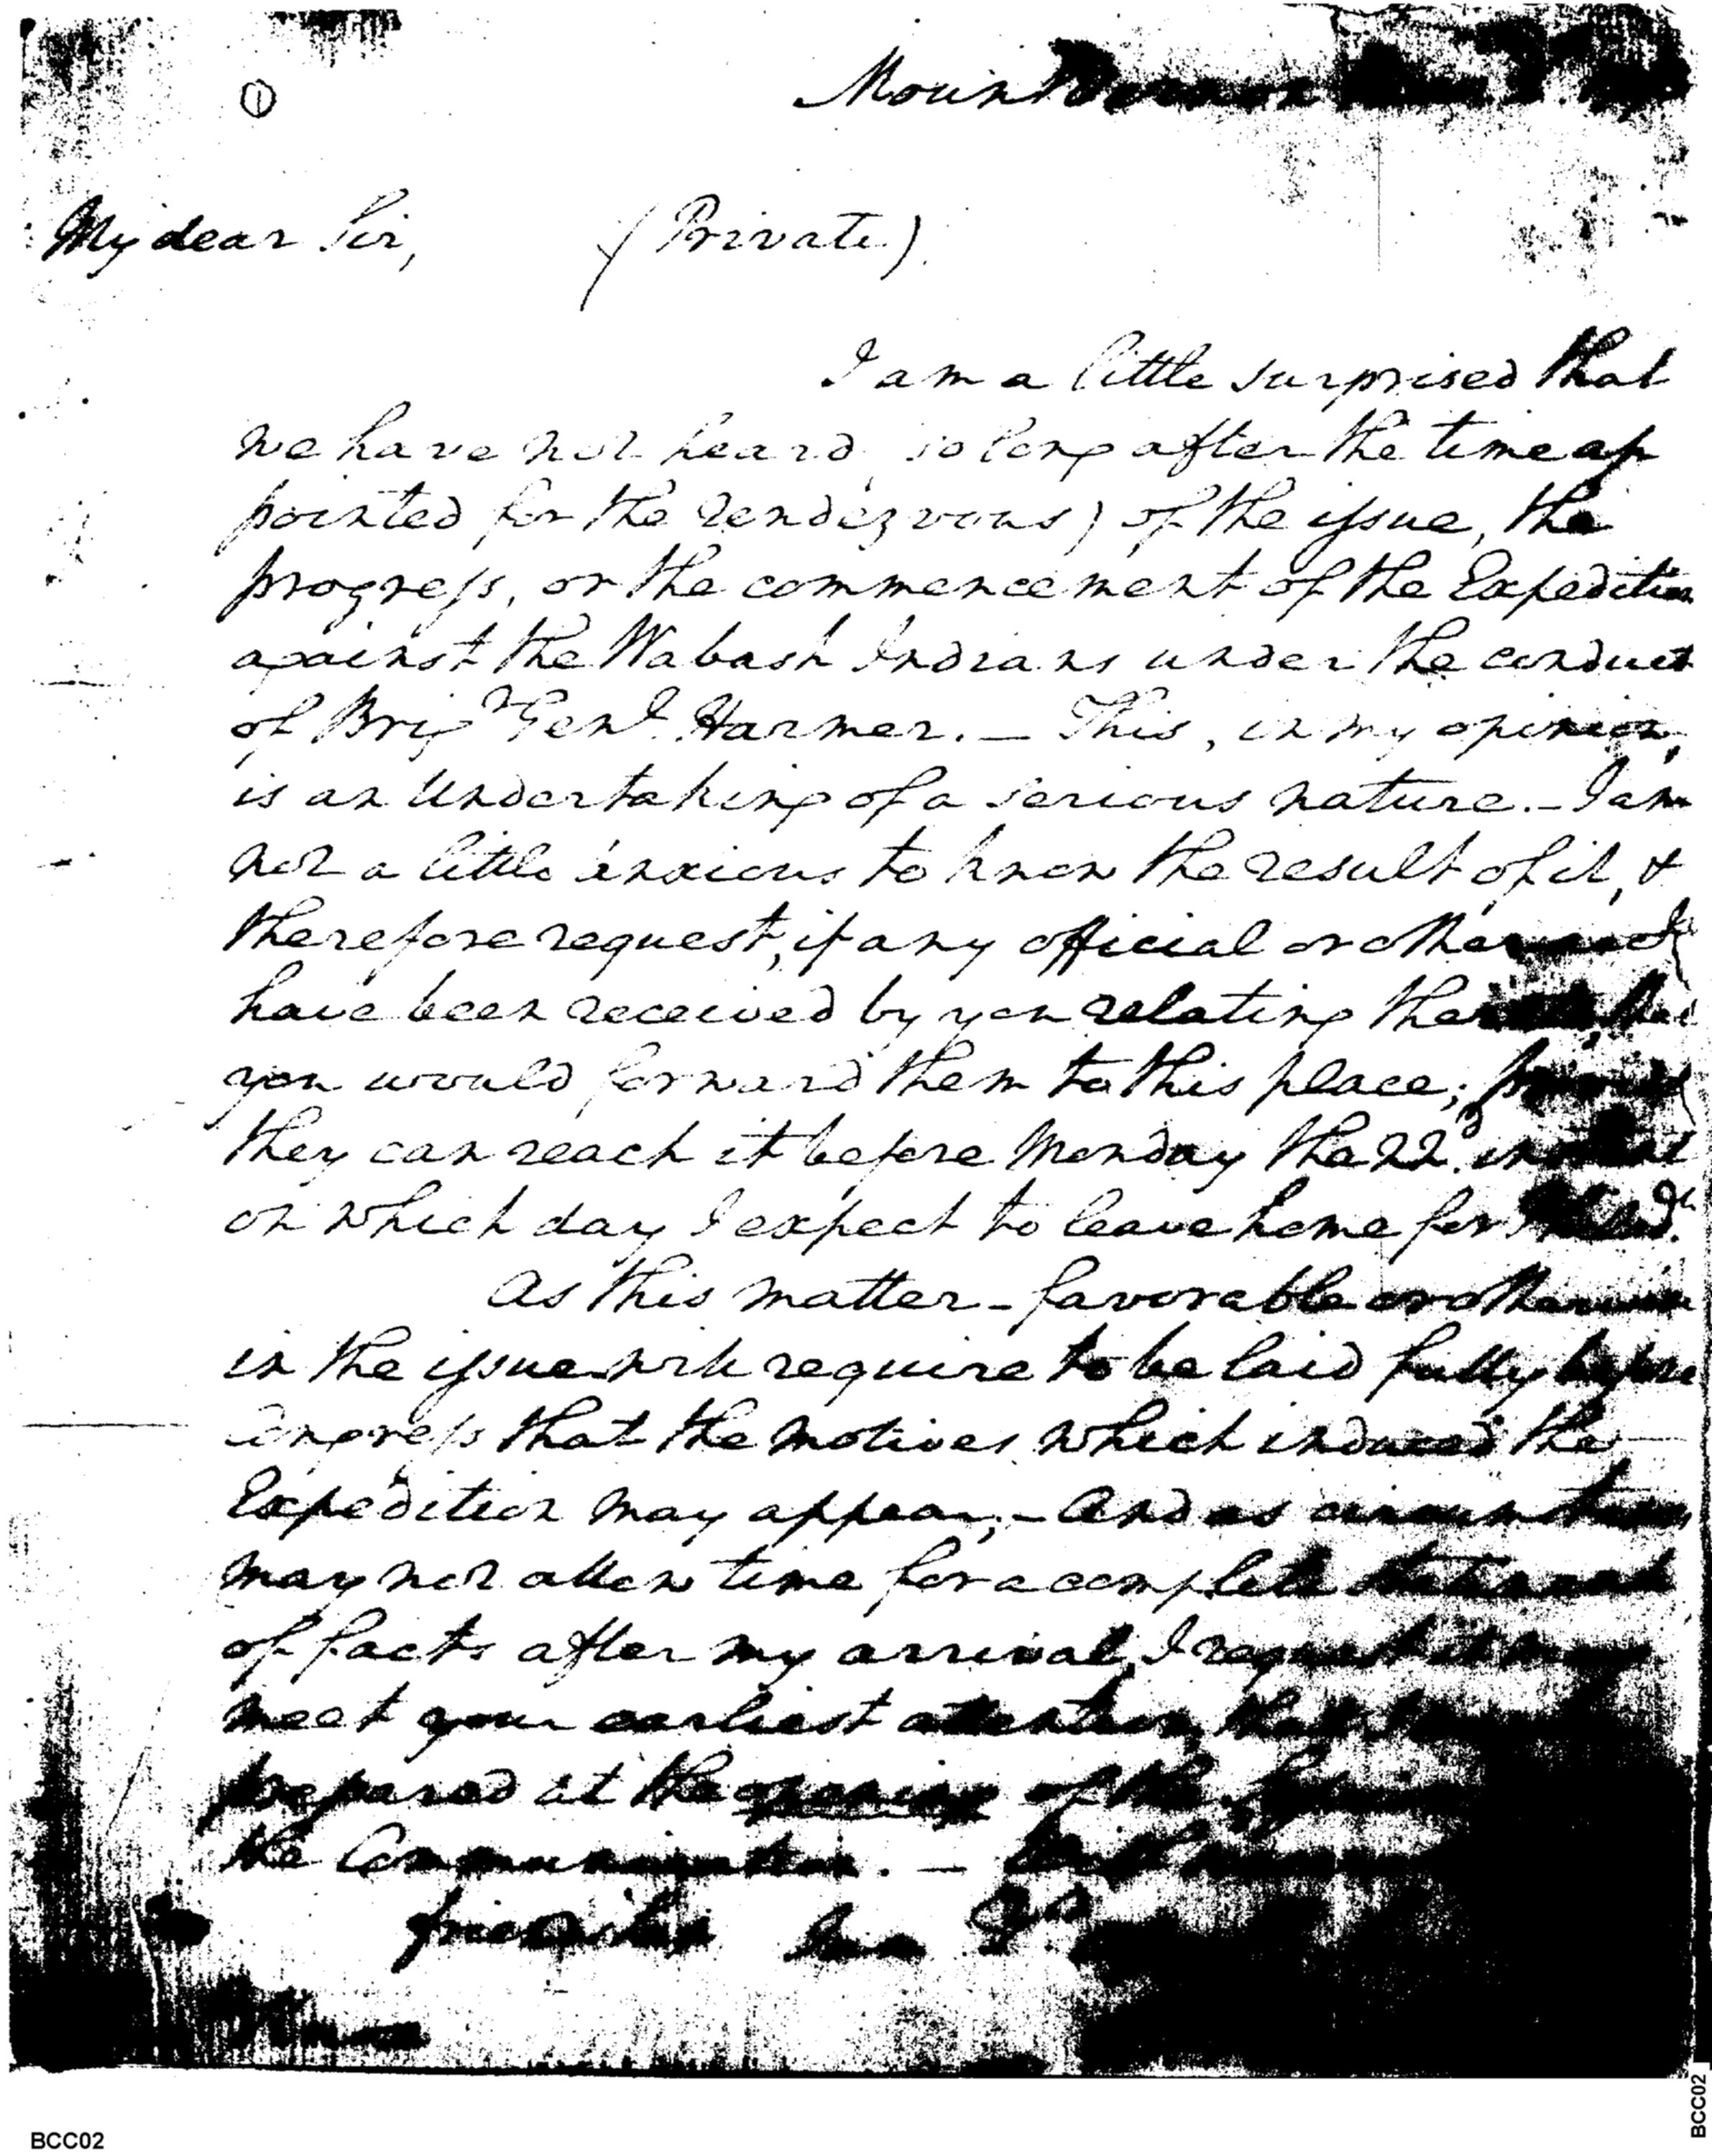 ①
Mount Vernon
My dear Sir, (Private)
I am a little surprised that
we have not heard so long after the time ap
pointed for the rendezvous) of the issue, the
progress, or the commencement of the Expedition
against the Wabash Indians under the conduct
of Brigr Genl Harmer. — This, in my opinion,
is an Undertaking of a serious nature. — I am
not a little anxious to know the result of it, &
therefore request, if any official or other
have been received by you relating
you would forward them to this place;
they can reach it before Monday the 22d instant
on which day I expect to leave home for
As this matter - favorable or otherwise
in the issue will require to be laid fully before
Congress that the motives which induced the
Expedition may appear; - And as
may not allow time for a complete statement
of facts after my arrival, I request it may
meet your earliest attention, that I
prepared at the opening of the Session
the Communication. —
friendship I am Yr
BCC02
BCC02